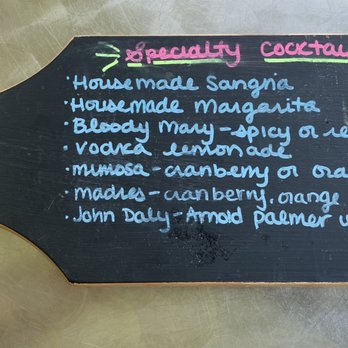 Specialty Cocktai
· Housemade Sangria
· Housemade Margarita
· Bloody Mary - spicy or re
· vodka lemonade
· mimosa - cranberry or ora
· madres - cranberry, orange
· John Daly - Arnold palmer